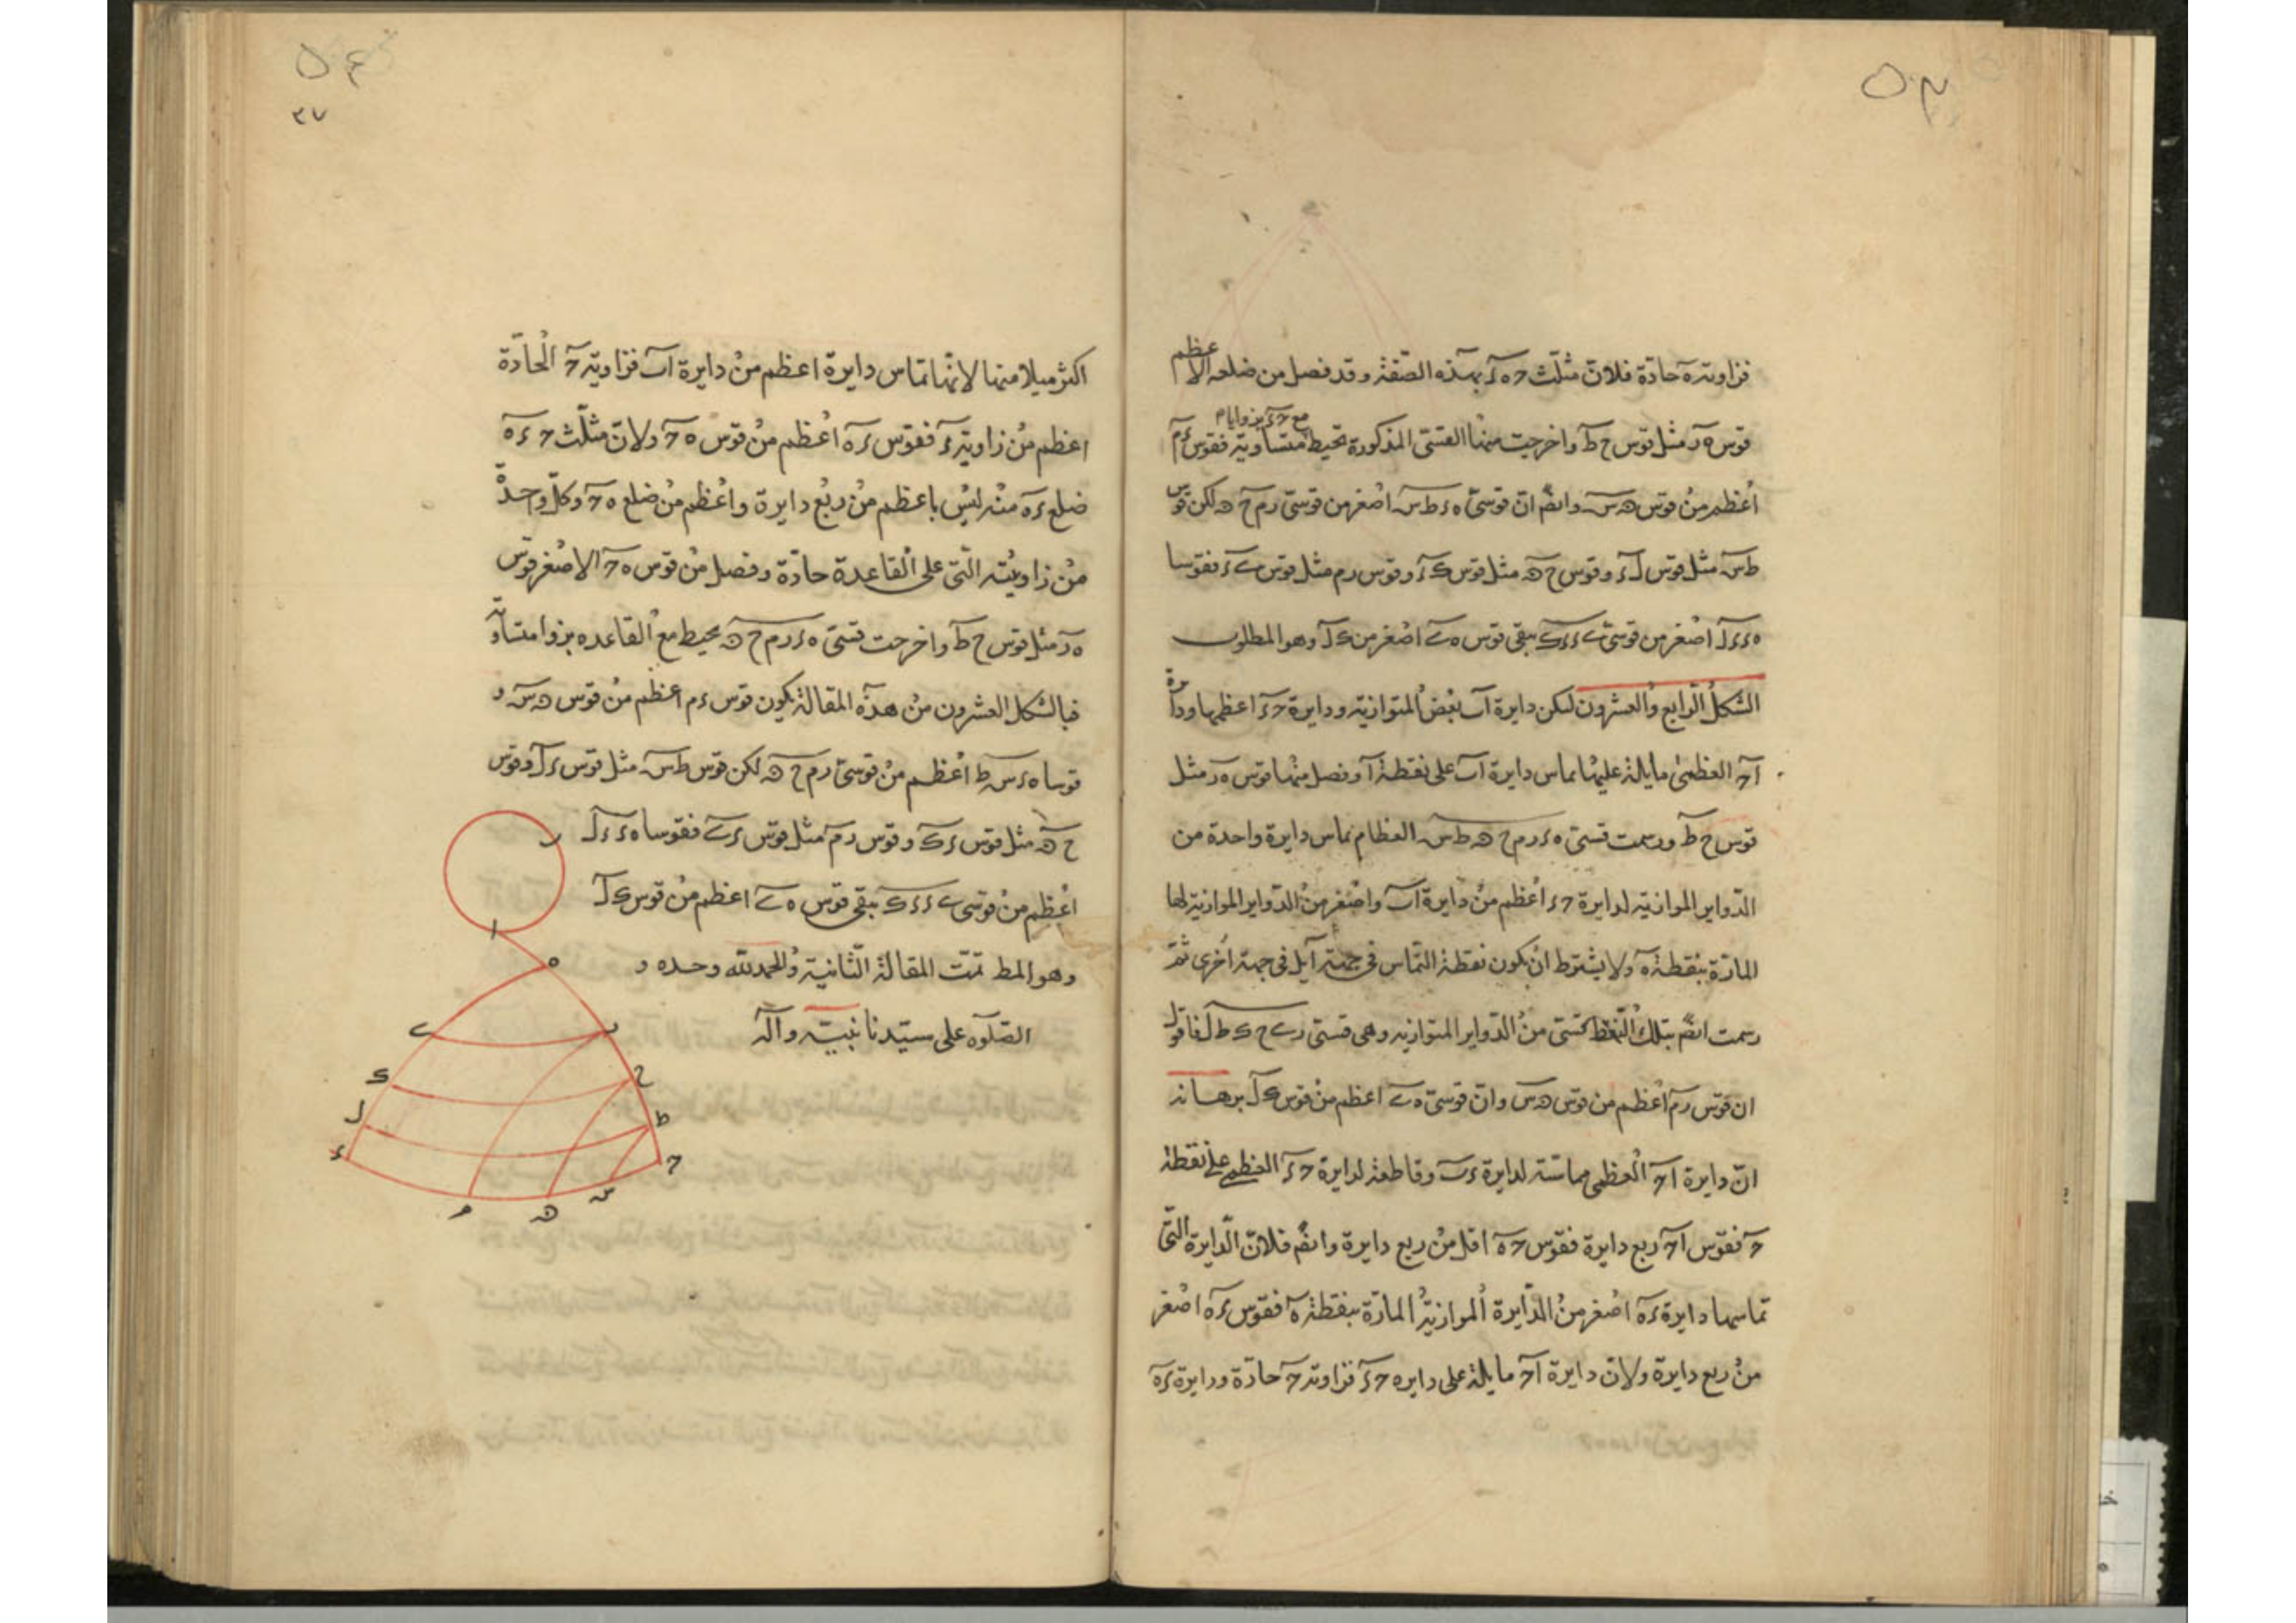 فزاويته ه حادة فلان مثلث ح ه ء بهذه الصفة وقد فصل من ضلعه الاعظم
قوس ه ر مثل قوس ح ط واخرجت منها القسى المذكورة تحيط مع ح ء بزوايا متساوية فقوس ء م
اعظم من قوس ﻫ س وايضًا ان قوسى ه ء ط س اصغر من قوسى ر م ح ﻫ لكن قوس
ط س مثل قوس ل ء وقوس ح ﻫ مثل قوس ك ء وقوس ر م مثل قوس ى ء فقوسا
ه ء ء ل اصغر من قوسى ى ء ء ك يبقى قوس ه ى اصغر من ك ل وهو المطلوب
الشكل الرابع والعشرون لتكن دايرة ا ب بعض المتوازية ودايرة ح ء اعظمها ودايرة
ا ح العظمى مايلة عليها تماس دايرة ا ب على نقطة ا وفصل منها قوس ه ر مثل
قوس ح ط ورسمت قسى ه ء ر م ح ﻫ ط س العظام تماس دايرة واحدة من
الدواير الموازية لدايرة ح ء اعظم من دايرة ا ب واصغر من الدواير الموازية لها
المارة بنقطة ه ولا يشترط ان يكون نقطة التماس فى جهة ا بل فى جهة اخرى ثم
رسمت ايضًا بتلك النقط قسى من الدواير المتوازية وهى قسى ر ى ح ك ط ل فاقول
ان قوس ر م اعظم من قوس ﻫ س وان قوسى ه ى اعظم من قوس ك ل برهانه
ان دايرة ا ح العظمى مماسة لدايرة ء ب وقاطعة لدايرة ح ء العظمى على نقطة
ح فقوس ا ح ربع دايرة فقوس ح ه اقل من ربع دايرة وايضًا فلان الدايرة التى
تماسها دايرة ء ه اصغر من الدايرة الموازية المارة بنقطة ه فقوس ء ه اصغر
من ربع دايرة ولان دايرة ا ح مايلة على دايره ح ء فزاوية ح حادة ودايرة ء ه
٢٧
اكثر ميلا منها لانها تماس دايرة اعظم من دايرة ا ب فزاوية ح الحادة
اعظم من زاوية ء فقوس ء ه اعظم من قوس ه ح ولان مثلث ح ء ه
ضلع ء ه منه ليس باعظم من ربع دايرة واعظم من ضلع ه ح وكل واحدة
من زاويتيه التى على القاعدة حادة وفصل من قوس ه ح الاصغر قوس
ه ر مثل قوس ح ط واخرجت قسى ه ء ر م ح ﻫ يحيط مع القاعده بزوا متساوية
فبالشكل العشرون من هذه المقالة يكون قوس ء م اعظم من قوس ﻫ س و
قوسا ه ء س ط اعظم من قوسى ر م ح ﻫ لكن قوس ط س مثل قوس ء ل وقوس
ح ﻫ مثل قوس ء ك وقوس ر م مثل قوس ء ى فقوسا ه ء ء ل
اعظم من قوسى ى ء ء ك يبقى قوس ه ى اعظم من قوس ك ل
وهو المط تمت المقالة الثانية والحمد لله وحده و
الصلوه على سيدنا نبيه وآله
ر
ا
ه
ى ر
ك ح
ل ط
ء ح
م ﻫ س